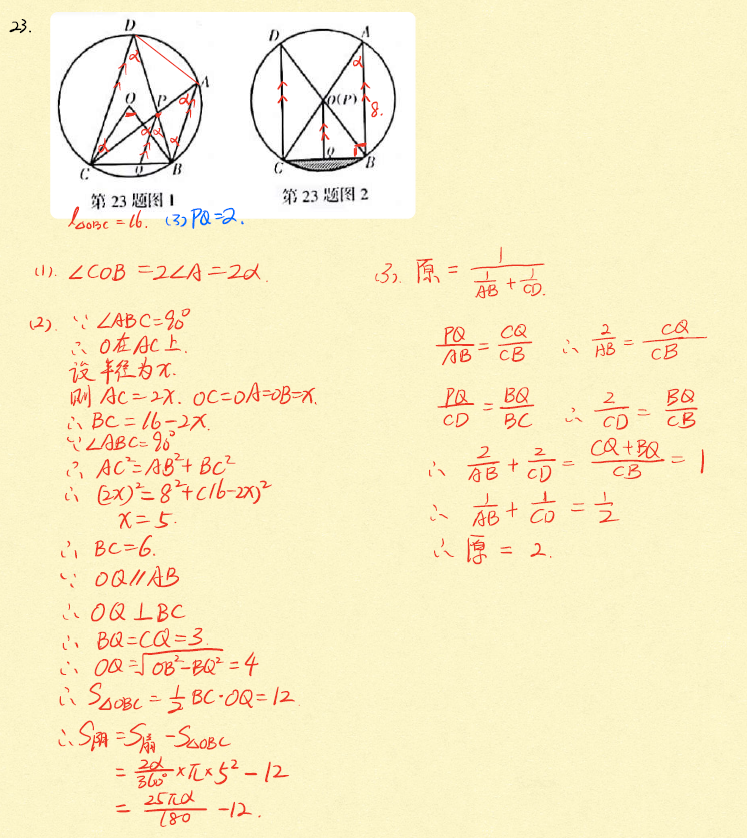 23.
D
A
O
P
C
Q
B
α
α
α
α
α
第23题图1
D
A
O(P)
C
Q
B
α
8.
第23题图2
l△OBC=16. (3) PQ=2.
(1). ∠COB=2∠A=2α.
(2). ∵∠ABC=90°
∴ O在AC上.
设半径为x.
则AC=2x. OC=OA=OB=x.
∴ BC=16-2x.
∵∠ABC=90°
∴ AC²=AB²+BC²
∴ (2x)²=8²+(16-2x)²
x=5.
∴ BC=6.
∵ OQ∥AB
∴ OQ⊥BC
∴ BQ=CQ=3.
∴ OQ=√OB²-BQ²=4
∴ S△OBC=1/2 BC·OQ=12
∴ S阴=S扇-S△OBC
=2α/360°×π×5²-12
=25πα/180-12.
(3). 原=1/(1/AB+1/CD.)
PQ/AB=CQ/CB ∴ 2/AB=CQ/CB
PQ/CD=BQ/BC ∴ 2/CD=BQ/CB
∴ 2/AB+2/CD=CQ+BQ/CB=1
∴ 1/AB+1/CD=1/2
∴ 原=2.